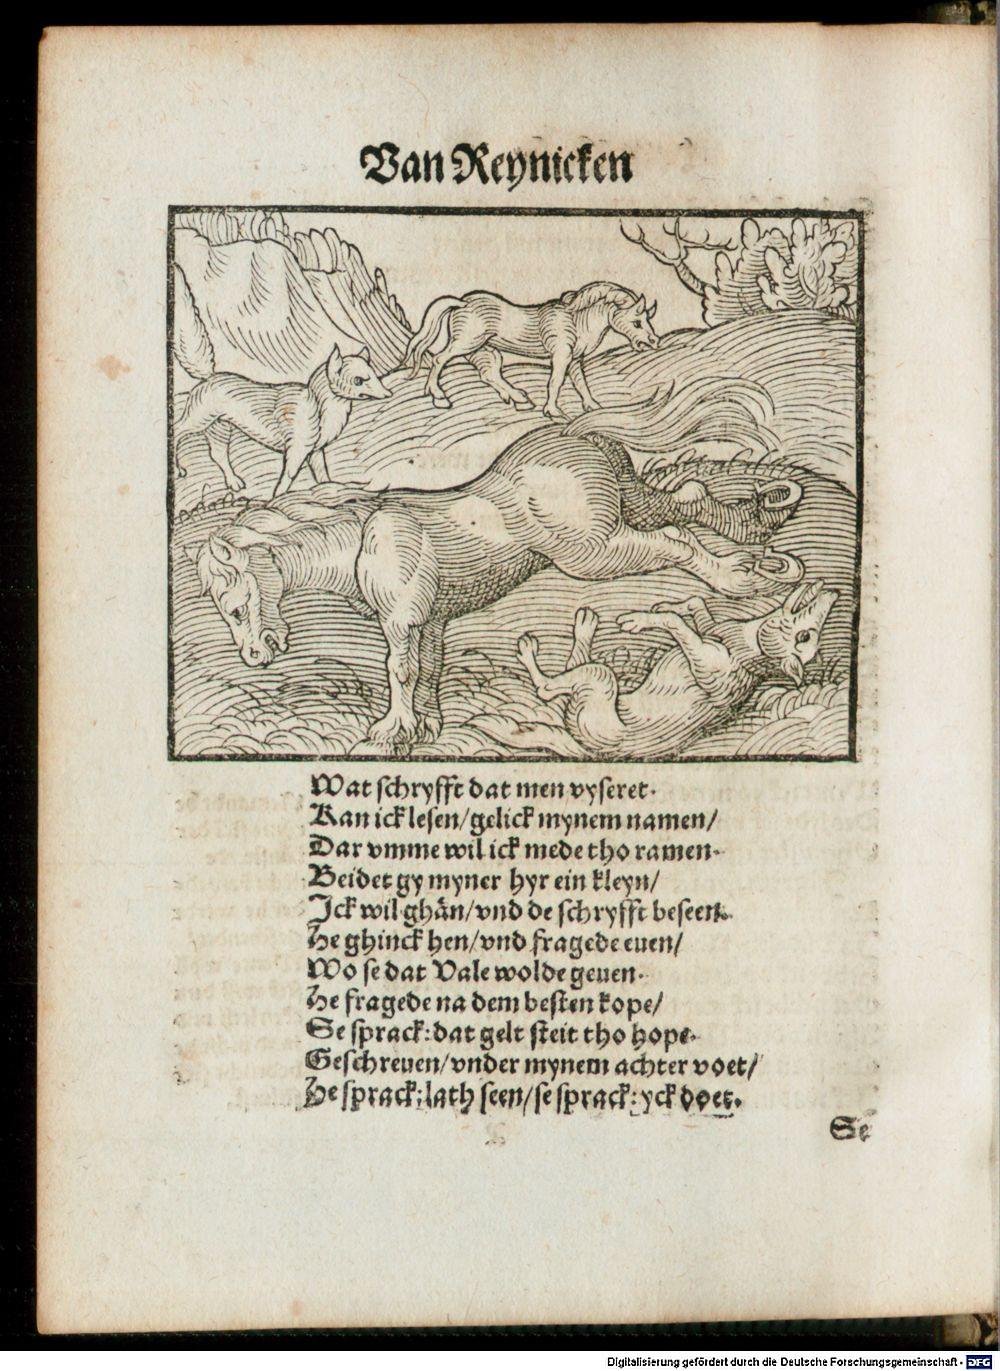 Van Reynicken
Wat schryfft dat men vyseret.
Kan ick lesen/gelick mynem namen/
Dar vmme wil ick mede tho ramen.
Beidet gy myner hyr ein kleyn/
Ick wil ghån/vnd de schryfft beseen.
He ghinck hen/vnd fragede euen/
Wo se dat Vale wolde geuen.
He fragede na dem besten kope/
Se sprack: dat gelt steit tho hope.
Geschreuen/vnder mynem achter voet/
He sprack: lath seen/se sprack: yck doet.
Se
Digitalisierung gefördert durch die Deutsche Forschungsgemeinschaft - DFG